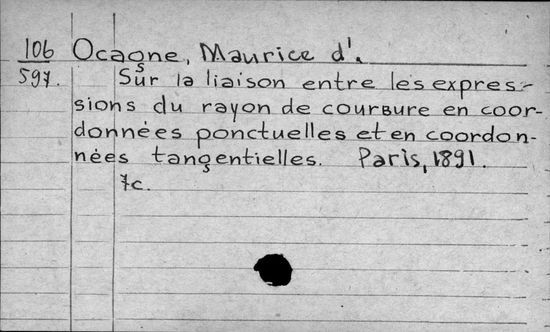 106 Ocagne, Maurice d'.
597. Sur la liaison entre les expres-
sions du rayon de courbure en coor-
données ponctuelles et en coordon-
nées tangentielles. Paris, 1891.
7c.